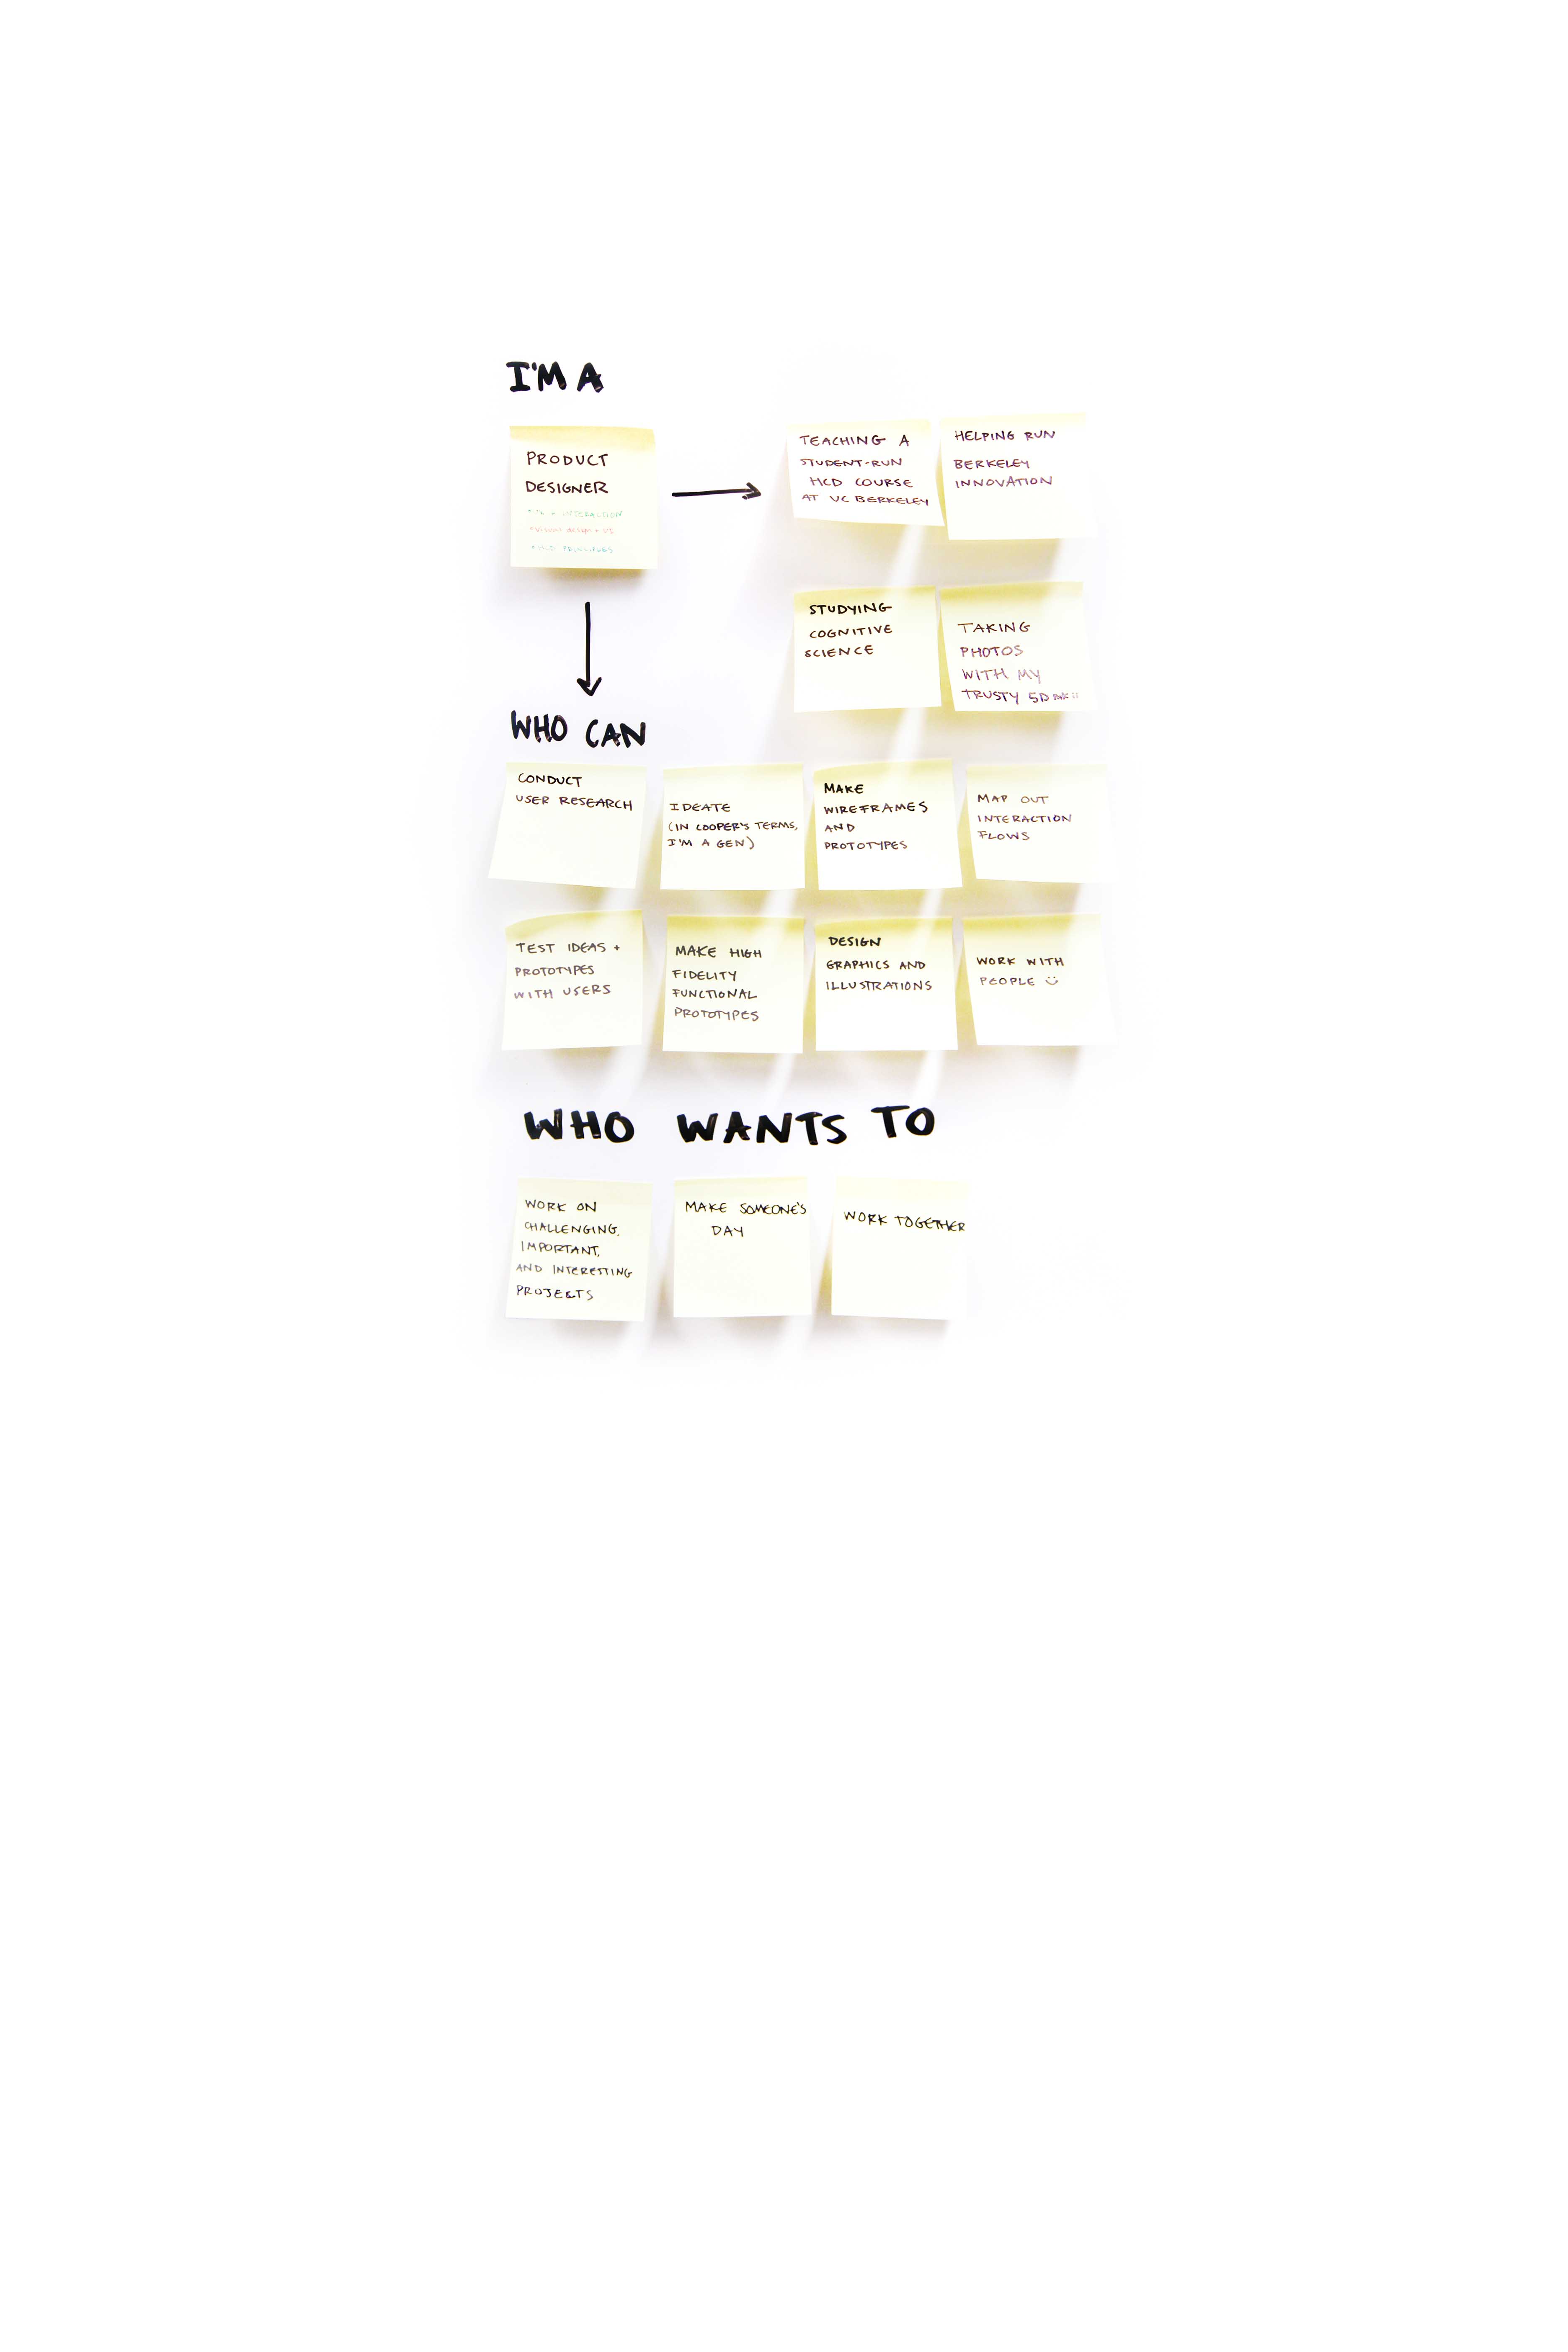 I'M A
PRODUCT
DESIGNER
TEACHING A
STUDENT-RUN
HCD COURSE
AT UC BERKELEY
HELPING RUN
BERKELEY
INNOVATION
STUDYING
COGNITIVE
SCIENCE
TAKING
PHOTOS
WITH MY
TRUSTY 5D
WHO CAN
CONDUCT
USER RESEARCH
IDEATE
(IN COOPER'S TERMS,
I'M A GEN)
MAKE
WIREFRAMES
AND
PROTOTYPES
MAP OUT
INTERACTION
FLOWS
TEST IDEAS +
PROTOTYPES
WITH USERS
MAKE HIGH
FIDELITY
FUNCTIONAL
PROTOTYPES
DESIGN
GRAPHICS AND
ILLUSTRATIONS
WORK WITH
PEOPLE
WHO WANTS TO
WORK ON
CHALLENGING,
IMPORTANT,
AND INTERESTING
PROJECTS
MAKE SOMEONE'S
DAY
WORK TOGETHER